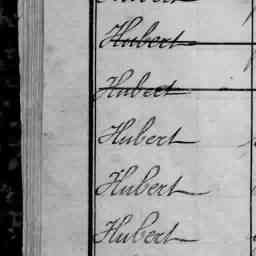 Hubert
Hubert
Hubert
Hubert
Hubert
Hubert